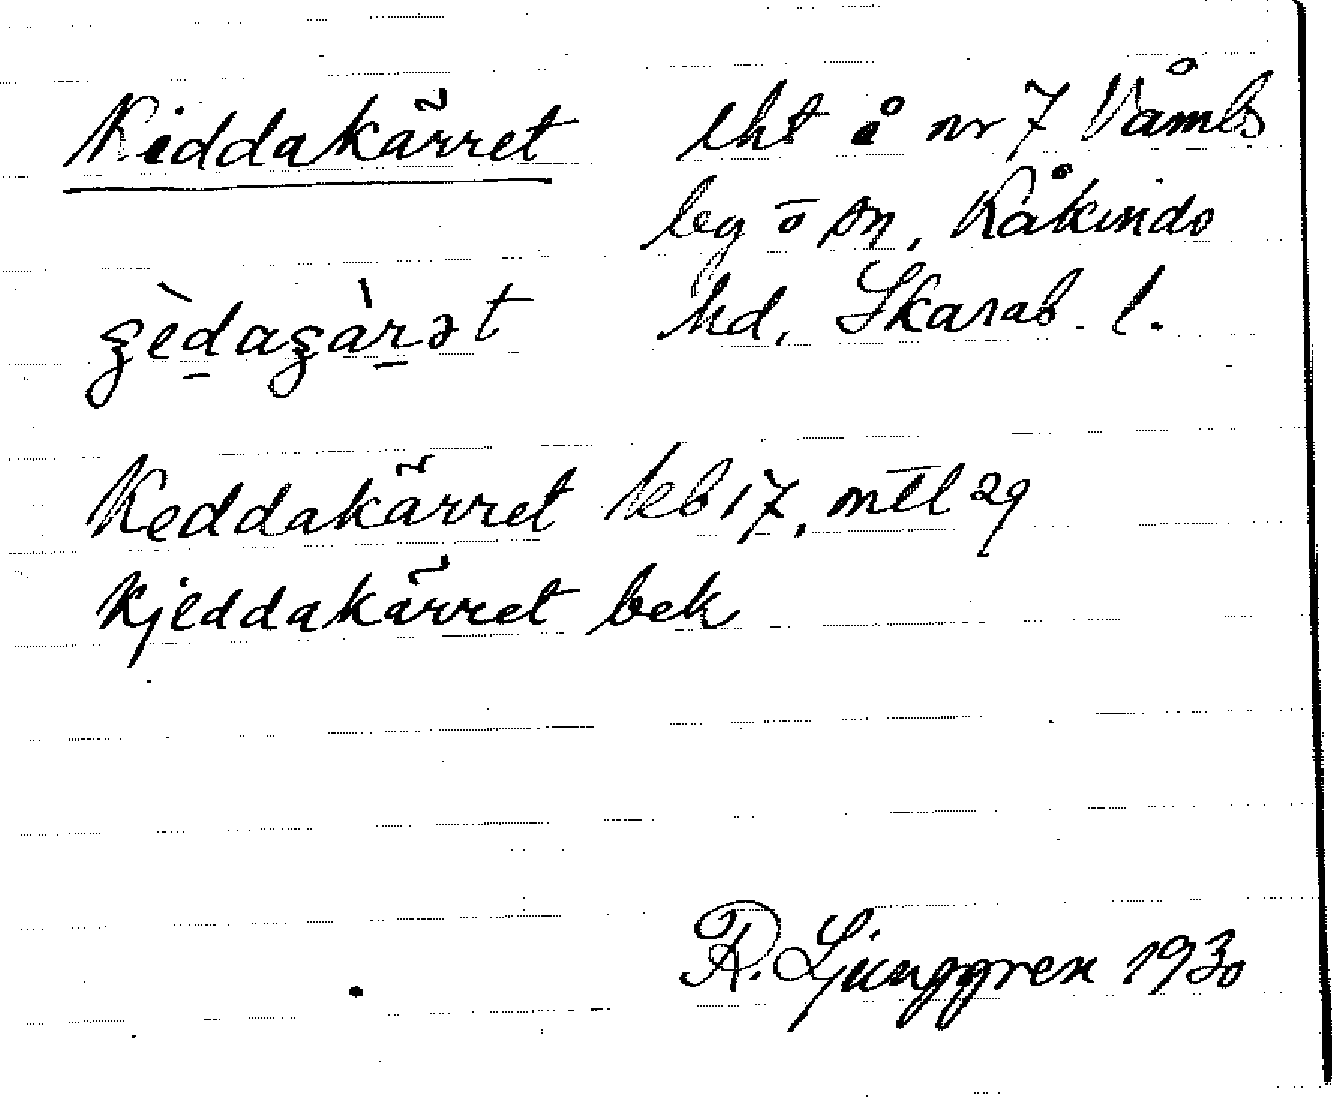 Kiddakärret lht å nr 7 Våmbs
leg ō sn, Kåkinds
hd, Skarab. l.
ʒèdaʒàrət
Keddakärret keb 17, mtl 29
Kjeddakärret bek
R. Ljunggren 1930